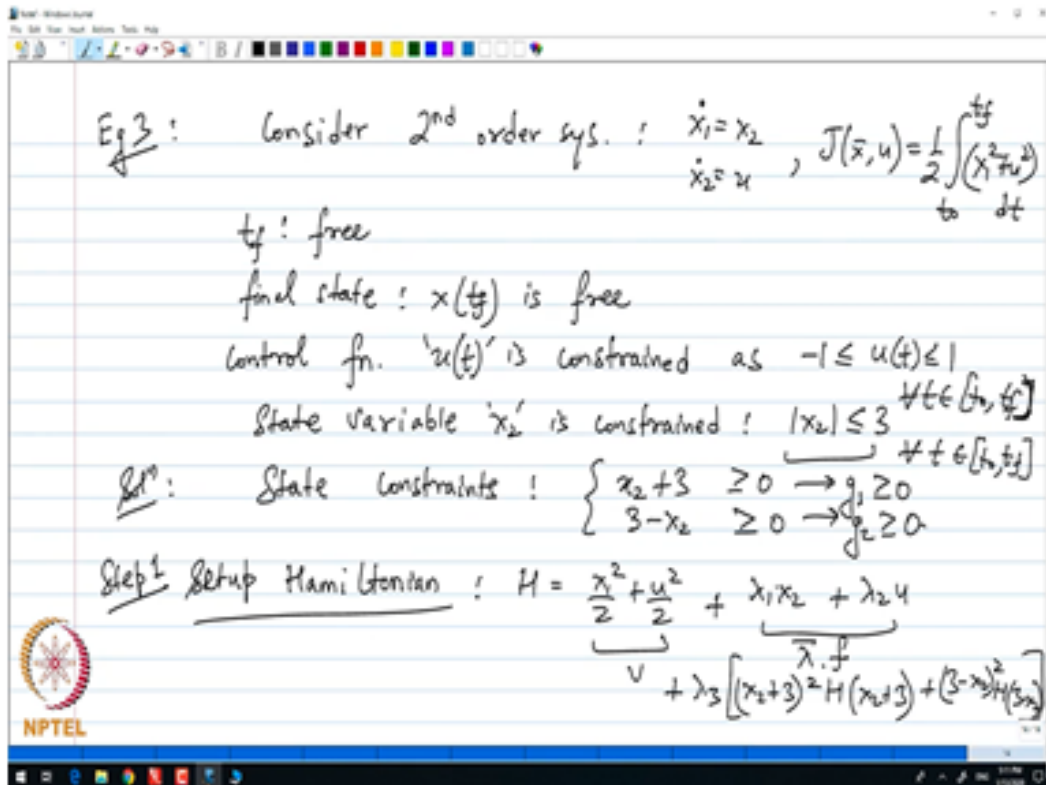 Eg 3 : Consider 2nd order sys. : ẋ₁ = x₂ , J(x̄, u) = 1/2 ∫ₜ₀^tf (x₁² + u²) dt
ẋ₂ = u
tf : free
final state : x(tf) is free
Control fn. 'u(t)' is constrained as -1 ≤ u(t) ≤ 1 ∀ t ∈ [t₀, tf]
State variable 'x₂' is constrained : |x₂| ≤ 3 ∀ t ∈ [t₀, tf]
Solⁿ : State Constraints : { x₂ + 3 ≥ 0 → g₁ ≥ 0
3 - x₂ ≥ 0 → g₂ ≥ 0
Step 1 Setup Hamiltonian : H = x₁²/2 + u²/2 + λ₁x₂ + λ₂u
V λ̄.f
+ λ₃ [(x₂+3)² H(x₂+3) + (3-x₂)² H(3-x₂)]
NPTEL